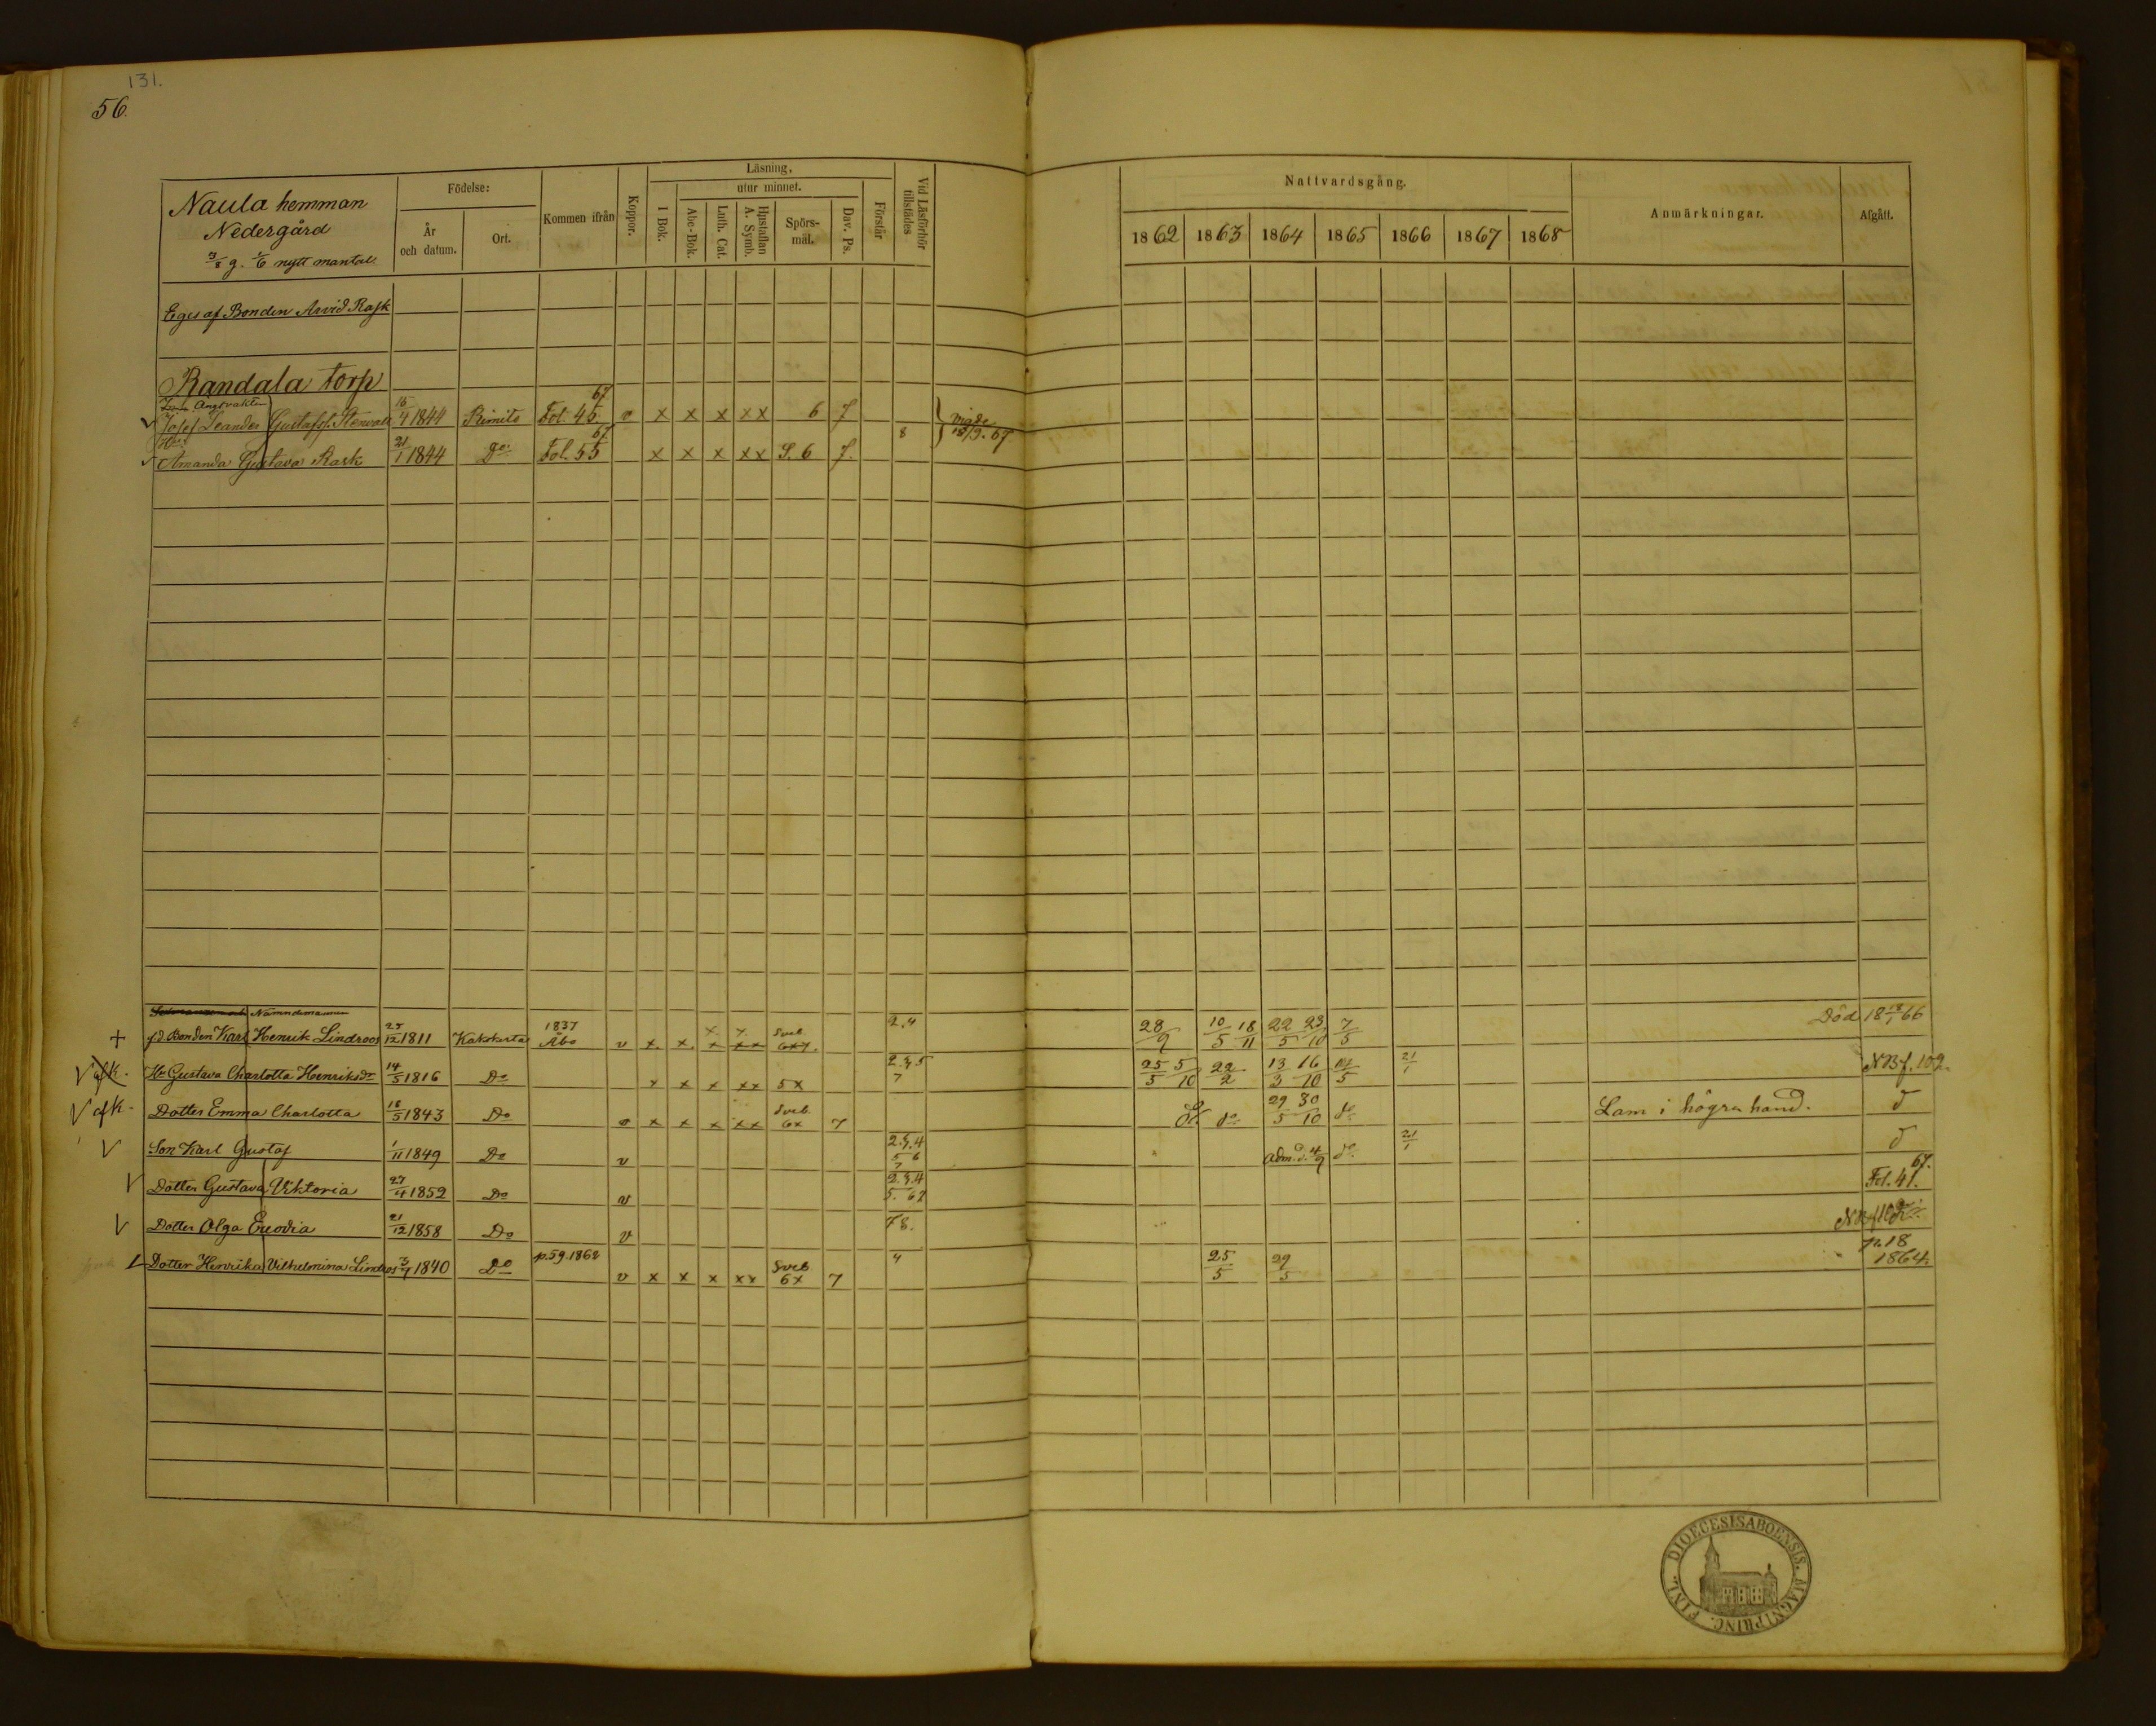 131.
56.
Naula hemman
Nedergård
3/8 g. 1/6 nytt mantal
Födelse:
År och datum.
Ort.
Kommen ifrån
Koppor.
Läsning.
I Bok.
utur minnet.
Abc-Bok.
Luth. Cat.
Hustaflan A. Symb.
Spörs-mål.
Dav. Ps.
Förstår
Vid Läsförhör tillstädes
Nattvardsgång.
1862 1863 1864 1865 1866 1867 1868
Anmärkningar.
Afgått.
Eges af Bonden Arvid Rask
Randala torp
Josef Leander Gustafss. Stenvall 15/4 1844 Rimito Fol. 45 67 v x x x xx 6 7
Vigde 15/9. 67
Amanda Gustava Rask 21/1 1844 do Fol. 55 67 x x x xx S. 6 7. 8
Nämndemannen
+ fd. Bonden Karl Henrik Lindroos 25/12 1811 Kakskerta 1837 Åbo v x. x. x x x xx Sveb 6x7. 2.4 28/9 10/5 18/11 22/5 23/10 7/5 Död 18 18/1 66
V afk. Hu Gustava Charlotta Henriksdr 14/5 1816 Do x x x xx 5x 2.3.5 7 25/5 5/10 22/2 13/3 16/10 5 21/1 NB f. 102.
V afk. Dotter Emma Charlotta 18/5 1843 Do v x x x xx Sveb. 6x 7 do do 29/5 30/10 do Lam i högra hand. d
V Son Karl Gustaf 1/11 1849 Do v 2.3.4 5 6 7 adm. d. 4/9 do 21/1 d
V Dotter Gustava Viktoria 27/4 1852 Do v 2.3.4 5. 6 7 Fol. 41. 67.
V Dotter Olga Euodia 21/12 1858 Do v 7 8. NB f 102
Dotter Henrika Vilhelmina Lindroos 3/7 1840 Do p. 59. 1862 v x x x xx Sveb 6x 7 4 25/5 29/5 p. 18 1864
DIOECESIS ABOENSIS. MAGNI PRINC. FINL.